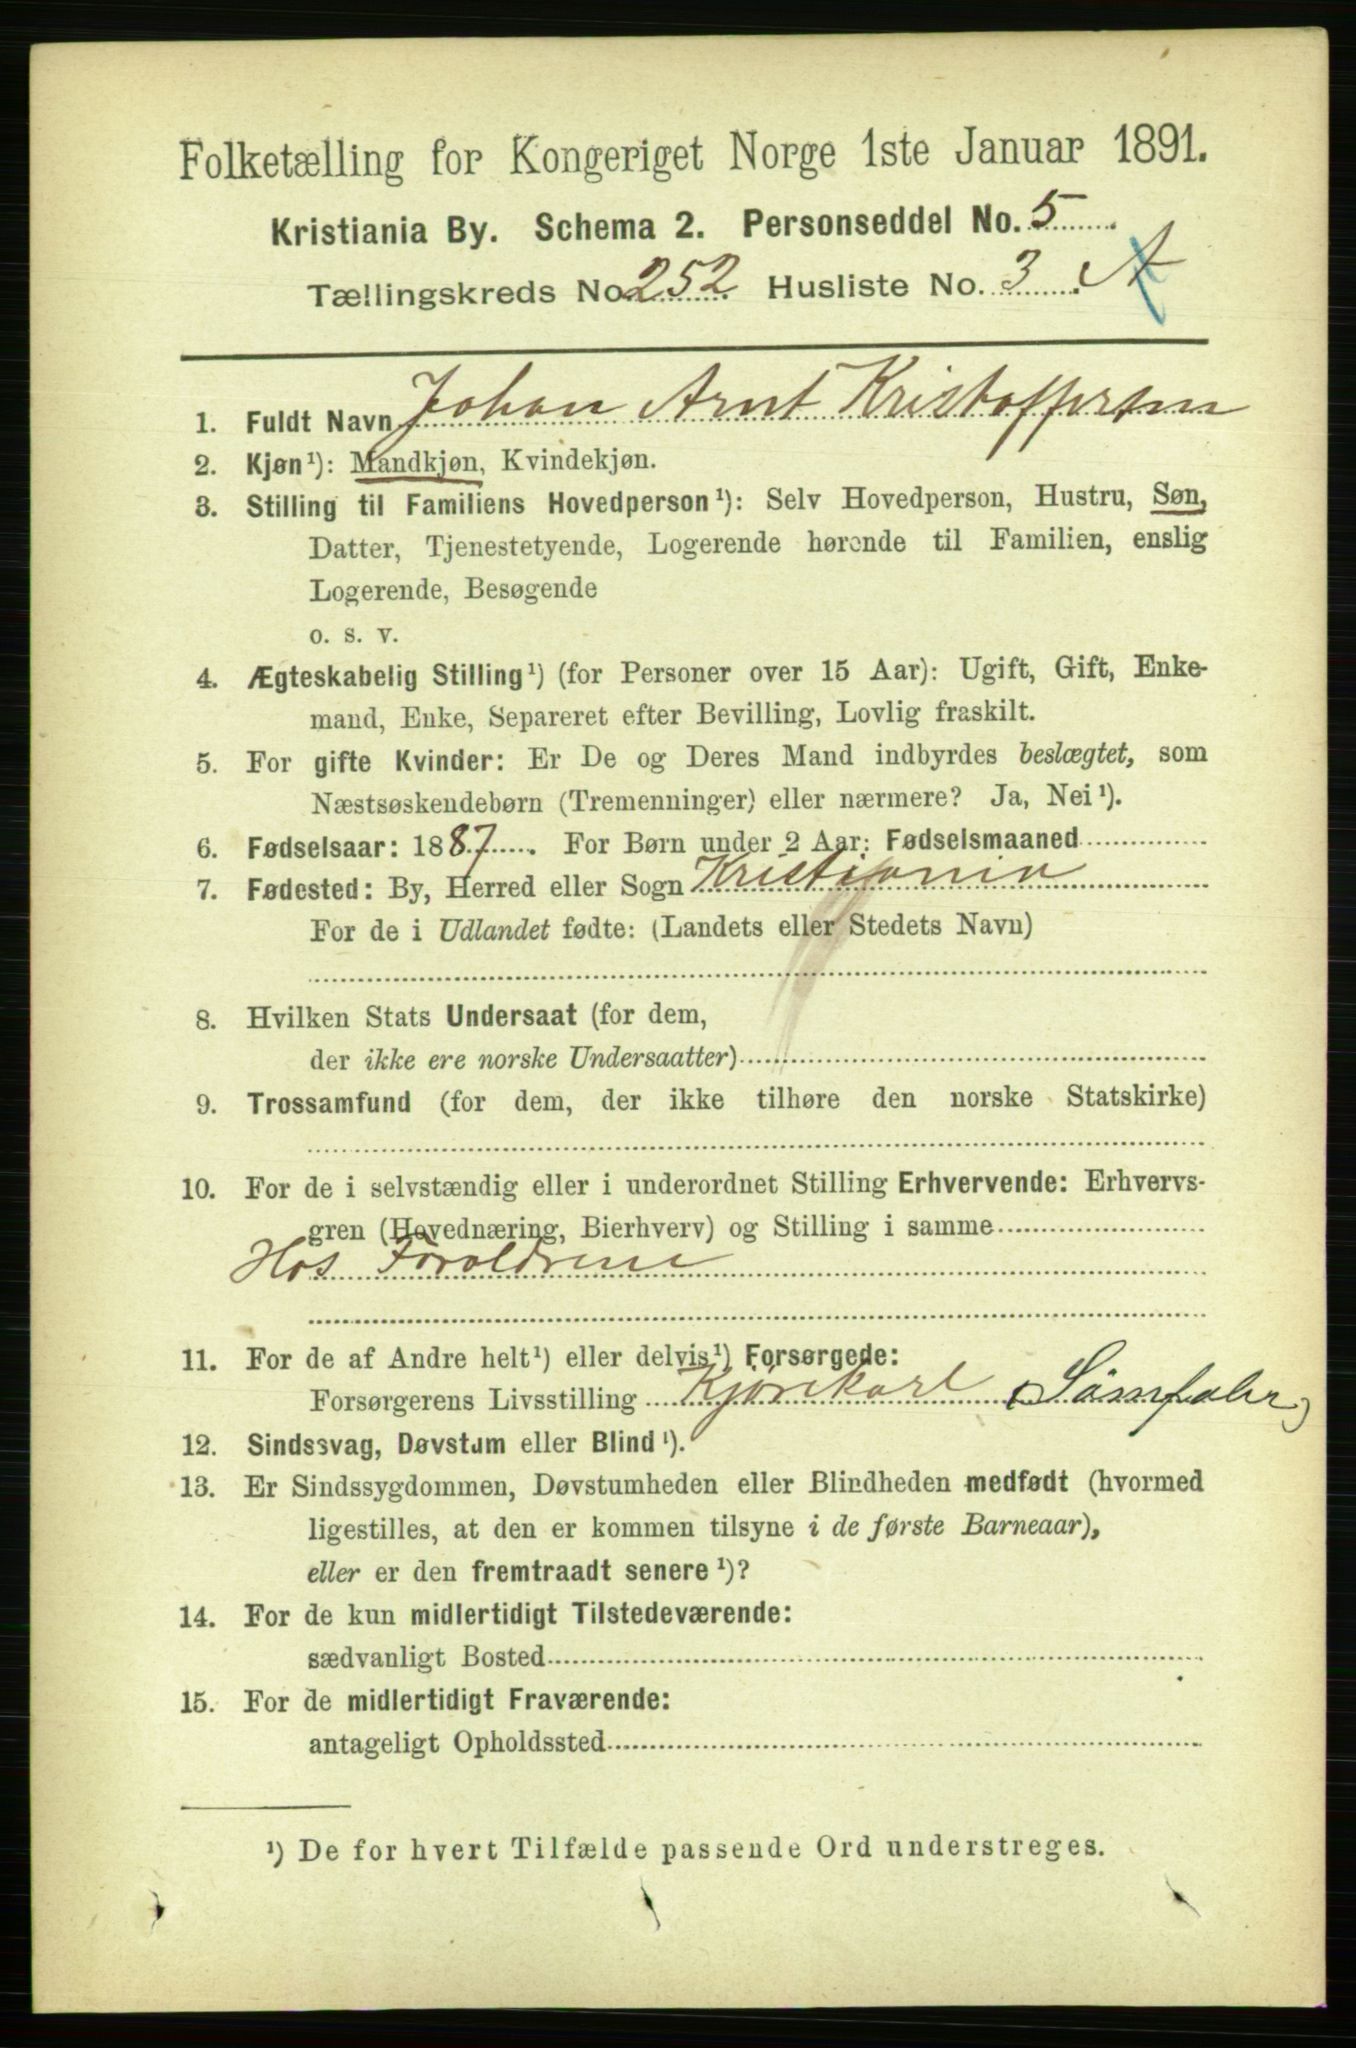 Folketælling for Kongeriget Norge 1ste Januar 1891.
Kristiania By. Schema 2. Personseddel No. 5
Tællingskreds No 252. Husliste No. 3. A
1. Fuldt Navn Johan Arnt Kristoffersen
2. Kjøn¹): Mandkjøn, Kvindekjøn.
3. Stilling til Familiens Hovedperson¹): Selv Hovedperson, Hustru, Søn,
Datter, Tjenestetyende, Logerende hørende til Familien, enslig
Logerende, Besøgende
o. s. v.
4. Ægteskabelig Stilling¹) (for Personer over 15 Aar): Ugift, Gift, Enke-
mand, Enke, Separeret efter Bevilling, Lovlig fraskilt.
5. For gifte Kvinder: Er De og Deres Mand indbyrdes beslægtet, som
Næstsøskendebørn (Tremenninger) eller nærmere? Ja, Nei¹).
6. Fødselsaar: 1887. For Børn under 2 Aar: Fødselsmaaned
7. Fødested: By, Herred eller Sogn Kristiania
For de i Udlandet fødte: (Landets eller Stedets Navn)
8. Hvilken Stats Undersaat (for dem,
der ikke ere norske Undersaatter)
9. Trossamfund (for dem, der ikke tilhøre den norske Statskirke)
10. For de i selvstændig eller i underordnet Stilling Erhvervende: Erhvervs-
gren (Hovednæring, Bierhverv) og Stilling i samme
Hos Foroldrene
11. For de af Andre helt¹) eller delvis¹) Forsørgede:
Forsørgerens Livsstilling Kjørekarl
12. Sindssvag, Døvstum eller Blind¹).
13. Er Sindssygdommen, Døvstumheden eller Blindheden medfødt (hvormed
ligestilles, at den er kommen tilsyne i de første Barneaar),
eller er den fremtraadt senere¹)?
14. For de kun midlertidigt Tilstedeværende:
sædvanligt Bosted
15. For de midlertidigt Fraværende:
antageligt Opholdssted
¹) De for hvert Tilfælde passende Ord understreges.